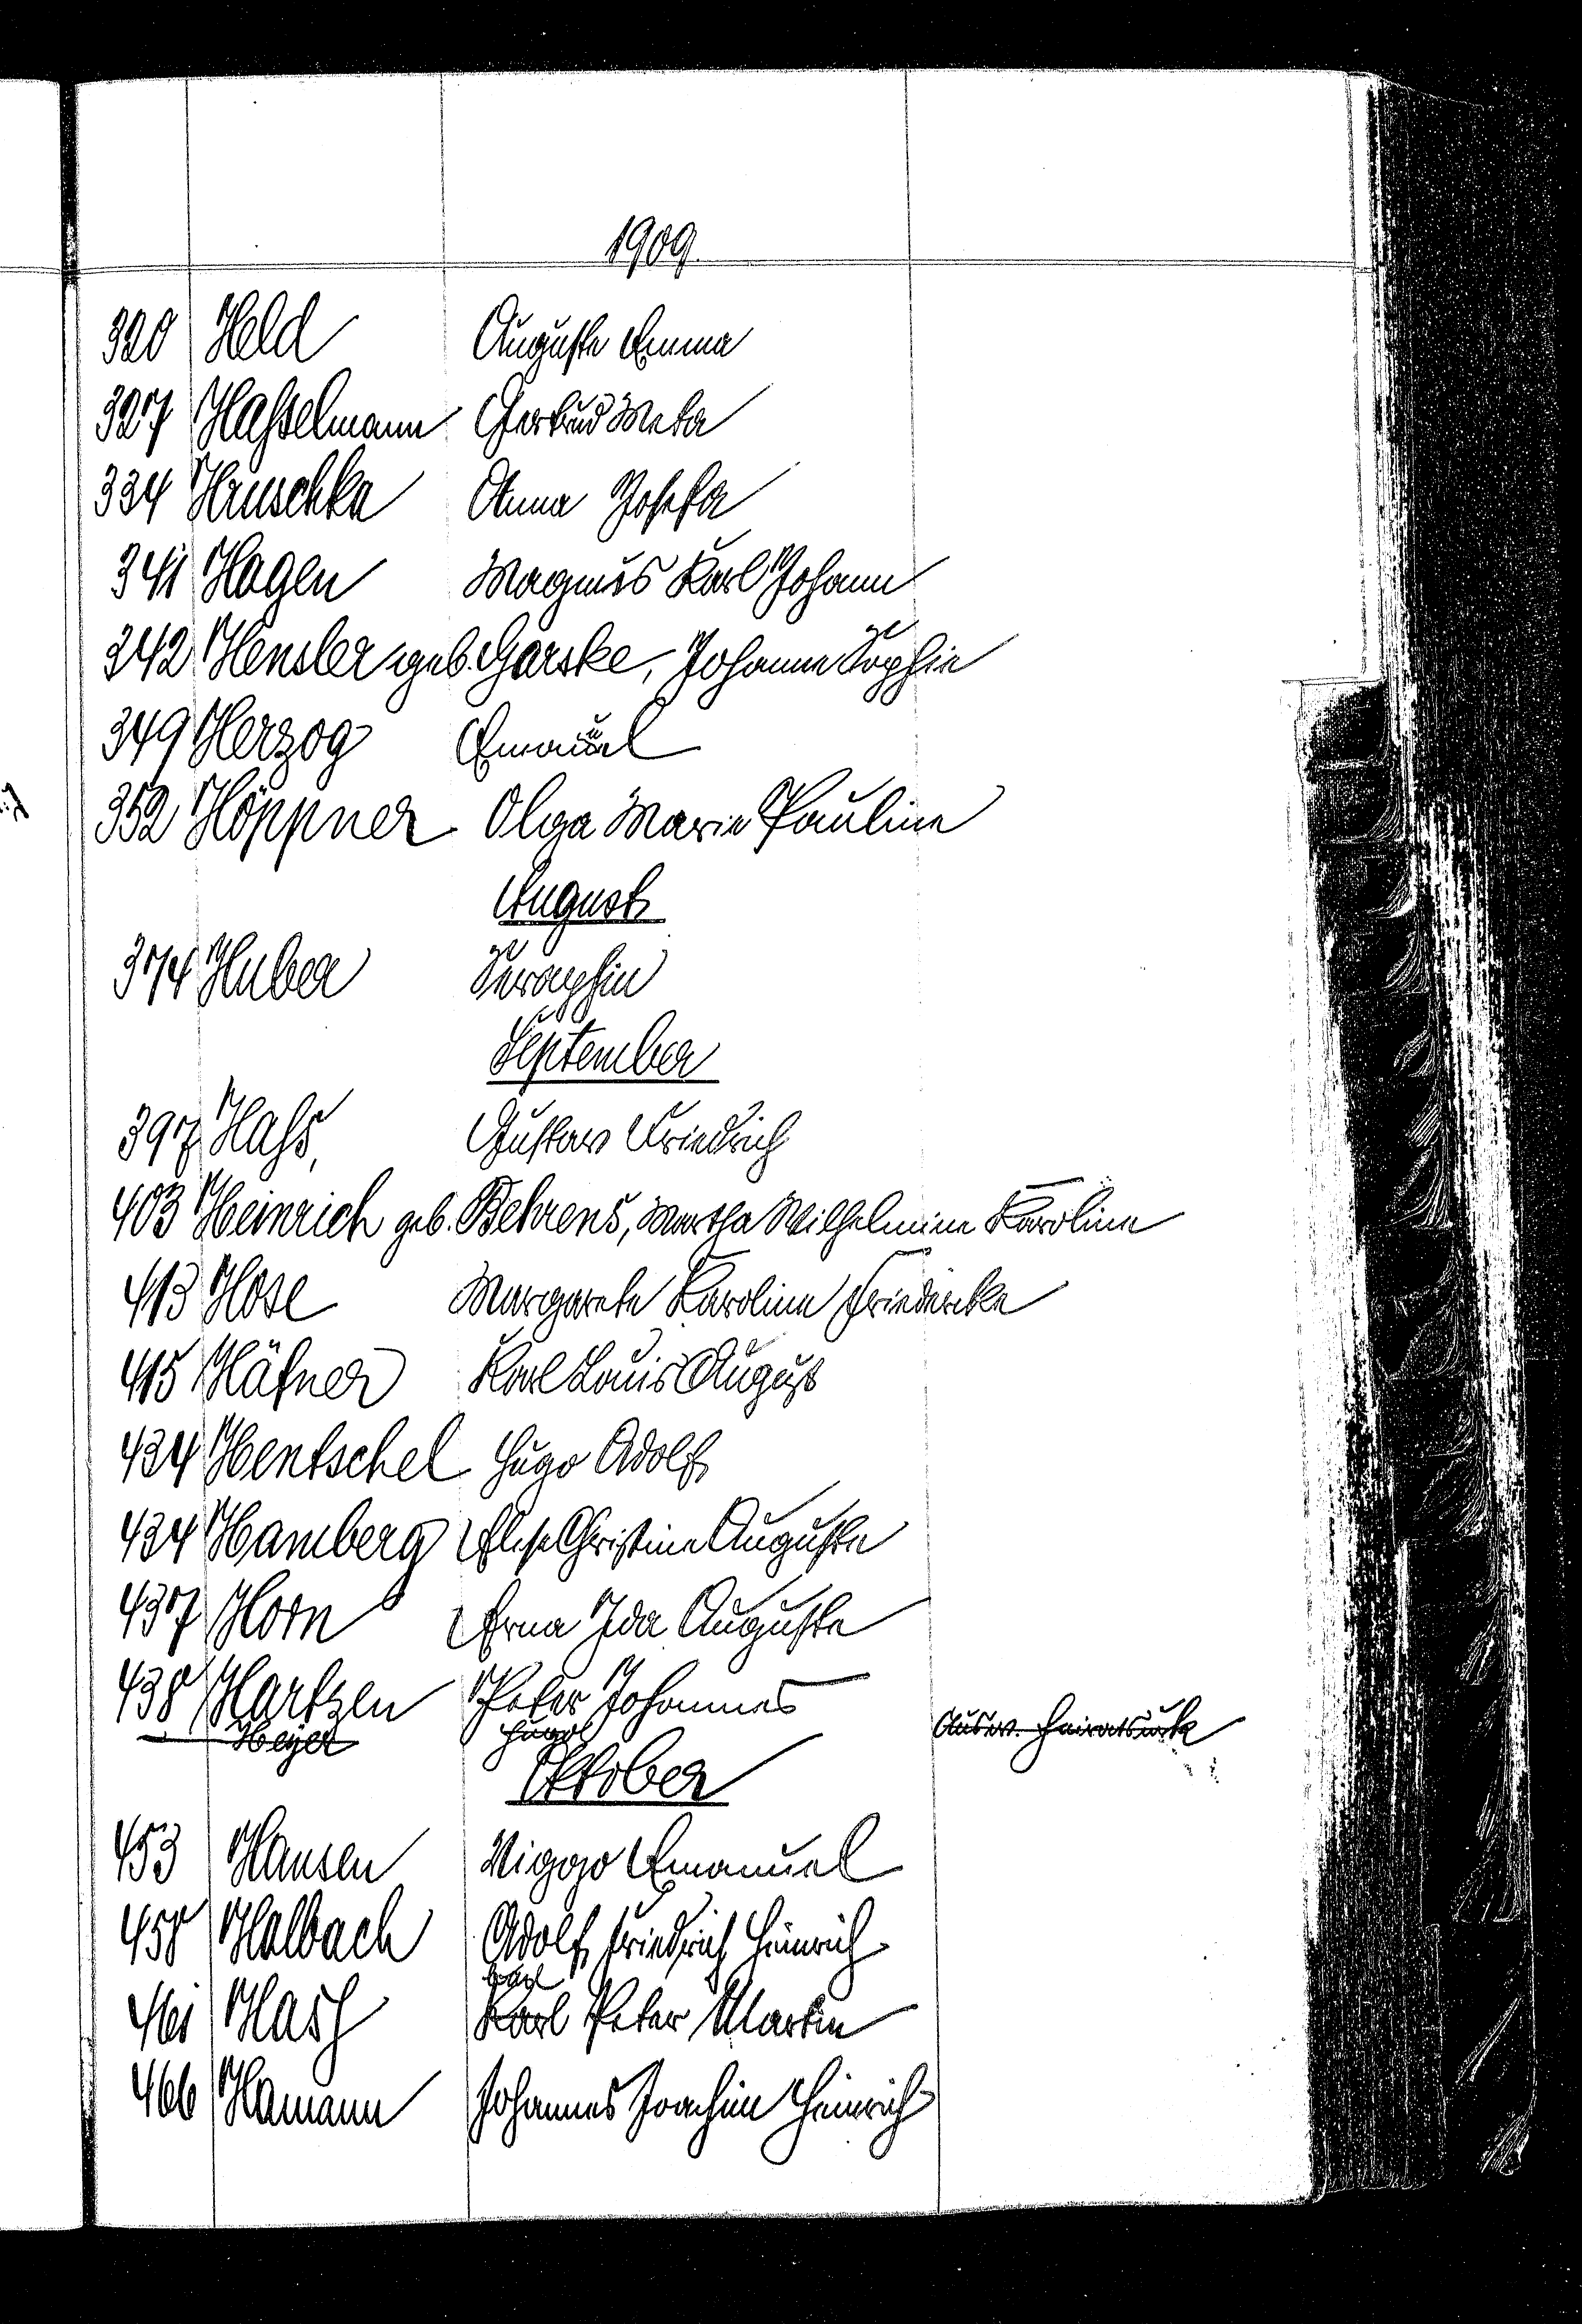 1909
320 Held Auguste Emma
327 Haßelmann Gertrud Meta
334 Hruschka Anna Josefa
341 Hagen Magnus Karl Johann
342 Hensler geb. Garske, Johanne Sophie
349 Herzog Emanuel
352 Höppner Olga Marie Pauline
August
374 Huber Seraphin
September
397 Haß, Gustav Friedrich
403 Heinrich geb. Behrens, Martha Wilhelmine Karoline
413 Hose Margarete Karoline Friedericke
415 Häfner Karl Louis August
434 Hentschel Hugo Adolf
434 Hamberg Else Christine Auguste
437 Horn Erna Ida Auguste
438 Hartzen Peter Johannes
Heyer Ausw. Heiratsurk
Oktober
453 Hansen Viggo Emanuel
458 Halbach Adolf Friedrich Heinrich
461 Hasch Karl Peter Martin
466 Hamann Johannes Joachim Heinrich